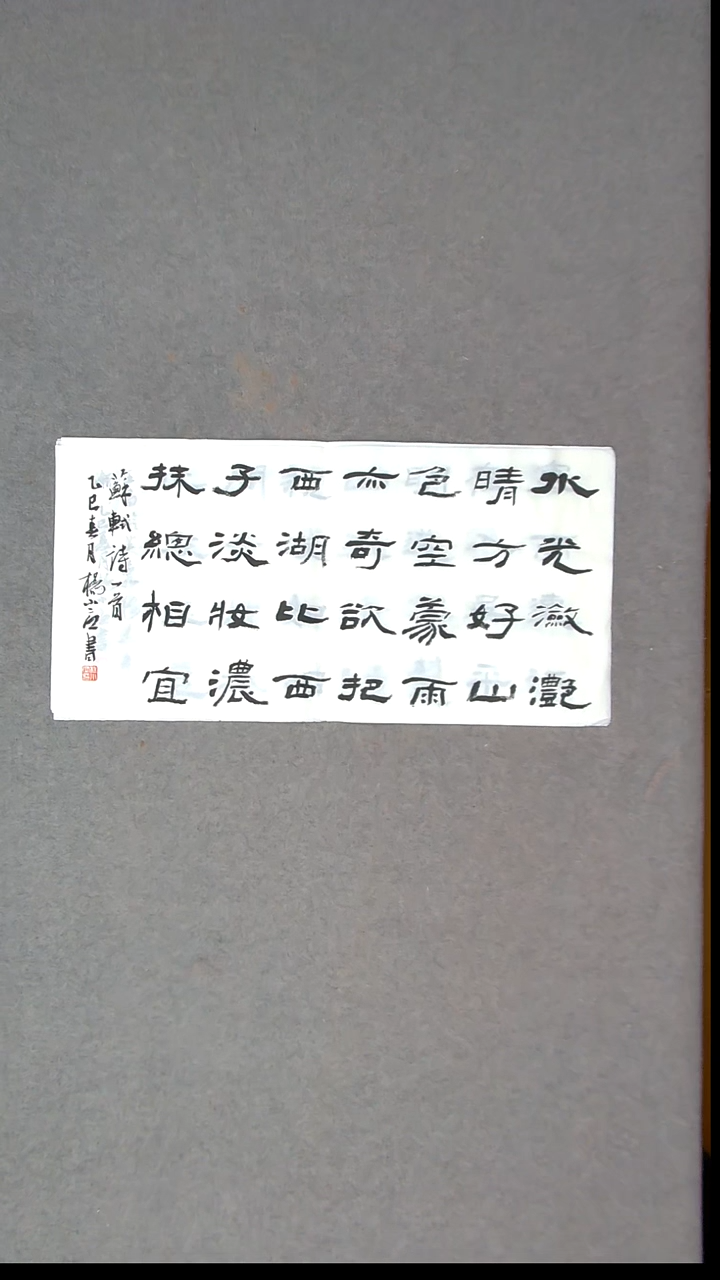 水光瀲灔
晴方好山
色空蒙雨
亦奇欲把
西湖比西
子淡妝濃
抹總相宜
蘇軾詩一首
乙巳春月楊小書